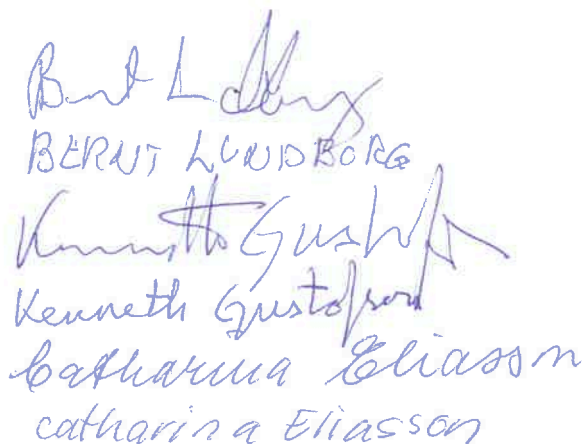 Bernt L
BERNT LUNDBORG
Kenneth Gustafsson
Kenneth Gustofsson
Catharina Eliasson
catharina Eliasson